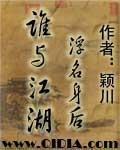 作者：颖川
浮名身后
谁与江湖
www.CMFU.com